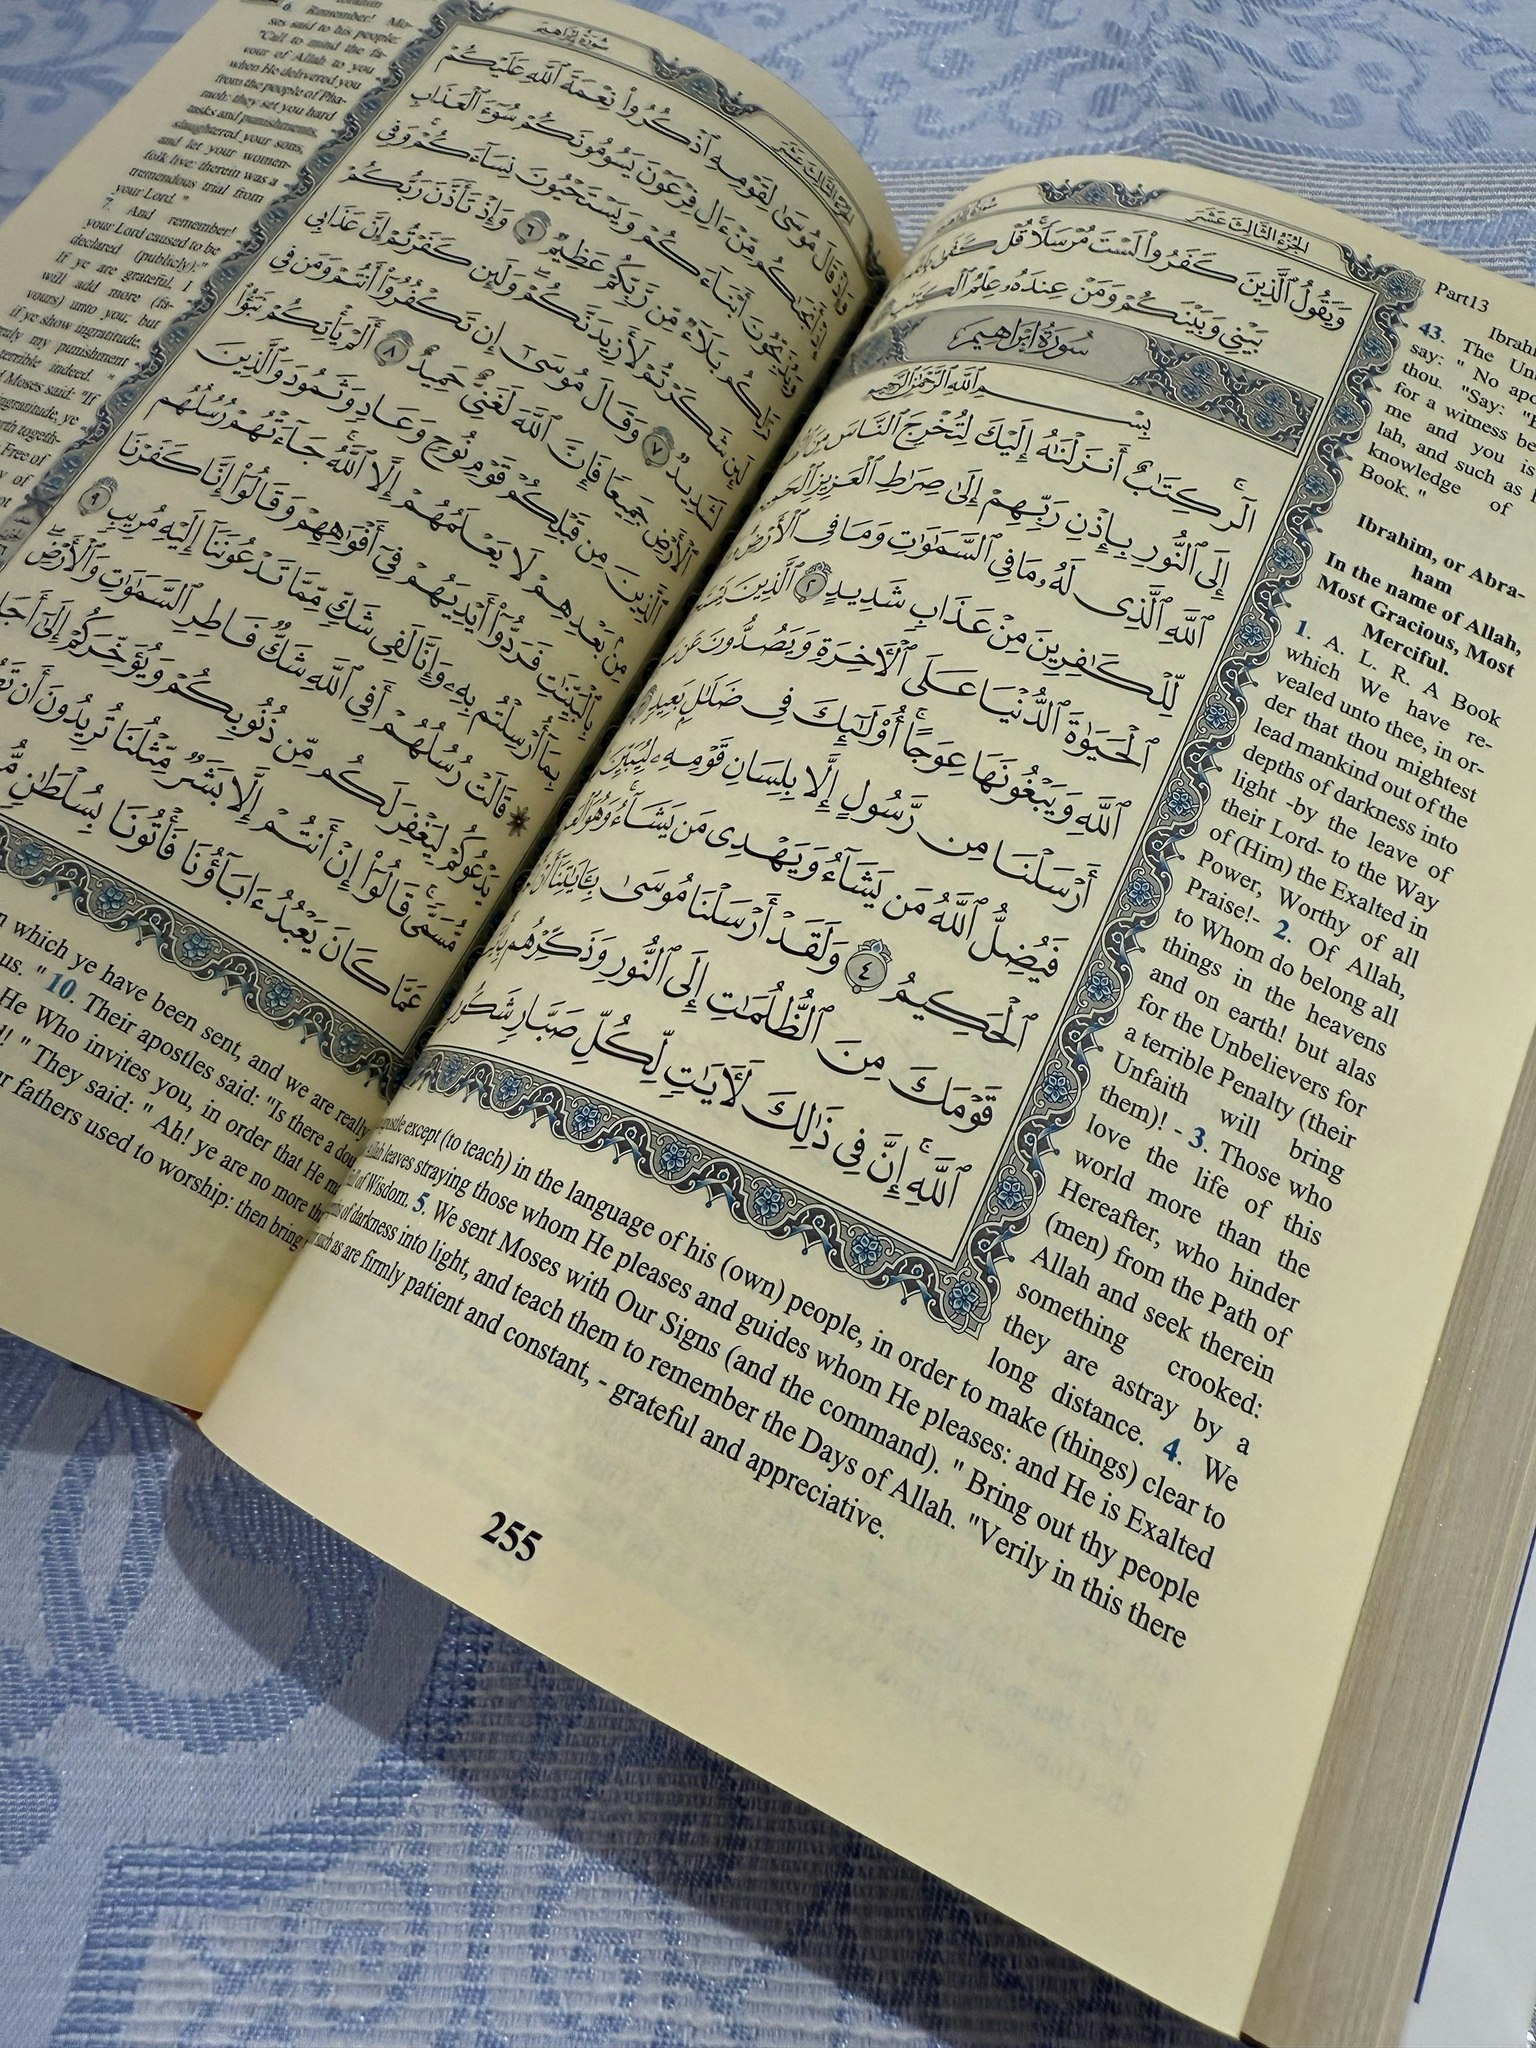 سورة إبراهيم
الجزء الثالث عشر
Part13
وَيَقُولُ ٱلَّذِينَ كَفَرُوا۟ لَسْتَ مُرْسَلًا ۚ قُلْ كَفَىٰ
بَيْنِى وَبَيْنَكُمْ وَمَنْ عِندَهُۥ عِلْمُ ٱلْكِتَٰبِ
سُورَةُ إِبْرَاهِيمَ
بِسْمِ ٱللَّهِ ٱلرَّحْمَٰنِ ٱلرَّحِيمِ
الٓر ۚ كِتَٰبٌ أَنزَلْنَٰهُ إِلَيْكَ لِتُخْرِجَ ٱلنَّاسَ مِنَ
إِلَى ٱلنُّورِ بِإِذْنِ رَبِّهِمْ إِلَىٰ صِرَٰطِ ٱلْعَزِيزِ
ٱللَّهِ ٱلَّذِى لَهُۥ مَا فِى ٱلسَّمَٰوَٰتِ وَمَا فِى ٱلْأَرْضِ
لِّلْكَٰفِرِينَ مِنْ عَذَابٍ شَدِيدٍ ٢ ٱلَّذِينَ
ٱلْحَيَوٰةَ ٱلدُّنْيَا عَلَى ٱلْءَاخِرَةِ وَيَصُدُّونَ عَن
ٱللَّهِ وَيَبْغُونَهَا عِوَجًا ۚ أُو۟لَٰٓئِكَ فِى ضَلَٰلٍۭ بَعِيدٍ
أَرْسَلْنَا مِن رَّسُولٍ إِلَّا بِلِسَانِ قَوْمِهِۦ لِيُبَيِّنَ
فَيُضِلُّ ٱللَّهُ مَن يَشَآءُ وَيَهْدِى مَن يَشَآءُ ۚ وَهُوَ
ٱلْحَكِيمُ ٤ وَلَقَدْ أَرْسَلْنَا مُوسَىٰ بِـَٔايَٰتِنَآ
قَوْمَكَ مِنَ ٱلظُّلُمَٰتِ إِلَى ٱلنُّورِ وَذَكِّرْهُم
ٱللَّهِ ۚ إِنَّ فِى ذَٰلِكَ لَءَايَٰتٍ لِّكُلِّ صَبَّارٍ شَكُورٍ
43. The
say: " No
thou. "Say:
for a witness
me and you is
lah, and such as
knowledge of
Book. "
Ibrahim, or Abra-
ham
In the name of Allah,
Most Gracious, Most
Merciful.
1. A. L. R. A Book
which We have re-
vealed unto thee, in or-
der that thou mightest
lead mankind out of the
depths of darkness into
light -by the leave of
their Lord- to the Way
of (Him) the Exalted in
Power, Worthy of all
Praise!- 2. Of Allah,
to Whom do belong all
things in the heavens
and on earth! but alas
for the Unbelievers for
a terrible Penalty (their
Unfaith will bring
them)! - 3. Those who
love the life of this
world more than the
Hereafter, who hinder
(men) from the Path of
Allah and seek therein
something crooked:
they are astray by a
long distance. 4. We
apostle except (to teach) in the language of his (own) people, in order to make (things) clear to
Allah leaves straying those whom He pleases and guides whom He pleases: and He is Exalted
of Wisdom. 5. We sent Moses with Our Signs (and the command). " Bring out thy people
of darkness into light, and teach them to remember the Days of Allah. "Verily in this there
such as are firmly patient and constant, - grateful and appreciative.
255
سورة إبراهيم
الجزء الثالث عشر
قَالَ مُوسَىٰ لِقَوْمِهِ ٱذْكُرُوا۟ نِعْمَةَ ٱللَّهِ عَلَيْكُمْ
مِّنْ ءَالِ فِرْعَوْنَ يَسُومُونَكُمْ سُوٓءَ ٱلْعَذَابِ
أَبْنَآءَكُمْ وَيَسْتَحْيُونَ نِسَآءَكُمْ ۚ وَفِى
بَلَآءٌ مِّن رَّبِّكُمْ عَظِيمٌ ٦ وَإِذْ تَأَذَّنَ رَبُّكُمْ
لَئِن شَكَرْتُمْ لَأَزِيدَنَّكُمْ ۖ وَلَئِن كَفَرْتُمْ إِنَّ عَذَابِى
لَشَدِيدٌ ٧ وَقَالَ مُوسَىٰٓ إِن تَكْفُرُوٓا۟ أَنتُمْ وَمَن فِى
ٱلْأَرْضِ جَمِيعًا فَإِنَّ ٱللَّهَ لَغَنِىٌّ حَمِيدٌ ٨ أَلَمْ يَأْتِكُمْ نَبَؤُا۟
ٱلَّذِينَ مِن قَبْلِكُمْ قَوْمِ نُوحٍ وَعَادٍ وَثَمُودَ وَٱلَّذِينَ
مِنۢ بَعْدِهِمْ لَا يَعْلَمُهُمْ إِلَّا ٱللَّهُ ۚ جَآءَتْهُمْ رُسُلُهُم
بِٱلْبَيِّنَٰتِ فَرَدُّوٓا۟ أَيْدِيَهُمْ فِىٓ أَفْوَٰهِهِمْ وَقَالُوٓا۟ إِنَّا كَفَرْنَا
بِمَآ أُرْسِلْتُم بِهِۦ وَإِنَّا لَفِى شَكٍّ مِّمَّا تَدْعُونَنَآ إِلَيْهِ مُرِيبٍ ٩
قَالَتْ رُسُلُهُمْ أَفِى ٱللَّهِ شَكٌّ فَاطِرِ ٱلسَّمَٰوَٰتِ وَٱلْأَرْضِ
يَدْعُوكُمْ لِيَغْفِرَ لَكُم مِّن ذُنُوبِكُمْ وَيُؤَخِّرَكُمْ إِلَىٰٓ
مُّسَمًّى ۚ قَالُوٓا۟ إِنْ أَنتُمْ إِلَّا بَشَرٌ مِّثْلُنَا تُرِيدُونَ أَن
عَمَّا كَانَ يَعْبُدُ ءَابَآؤُنَا فَأْتُونَا بِسُلْطَٰنٍ
6. Remember! Mo-
ses said to his people:
"Call to mind the fa-
vour of Allah to you
when He delivered you
from the people of Pha-
raoh: they set you hard
tasks and punishments,
slaughtered your sons,
and let your women-
folk live: therein was a
tremendous trial from
your Lord. "
7. And remember!
your Lord caused to be
declared (publicly):"
If ye are grateful, I
will add more (fa-
vours) unto you; but
if ye show ingratitude,
my punishment
terrible indeed. "
Moses said: "If
ingratitude, ye
Free of
which ye have been sent, and we are really
us. " 10. Their apostles said: "Is there a
He Who invites you, in order that He
" They said: " Ah! ye are no more
fathers used to worship: then bring